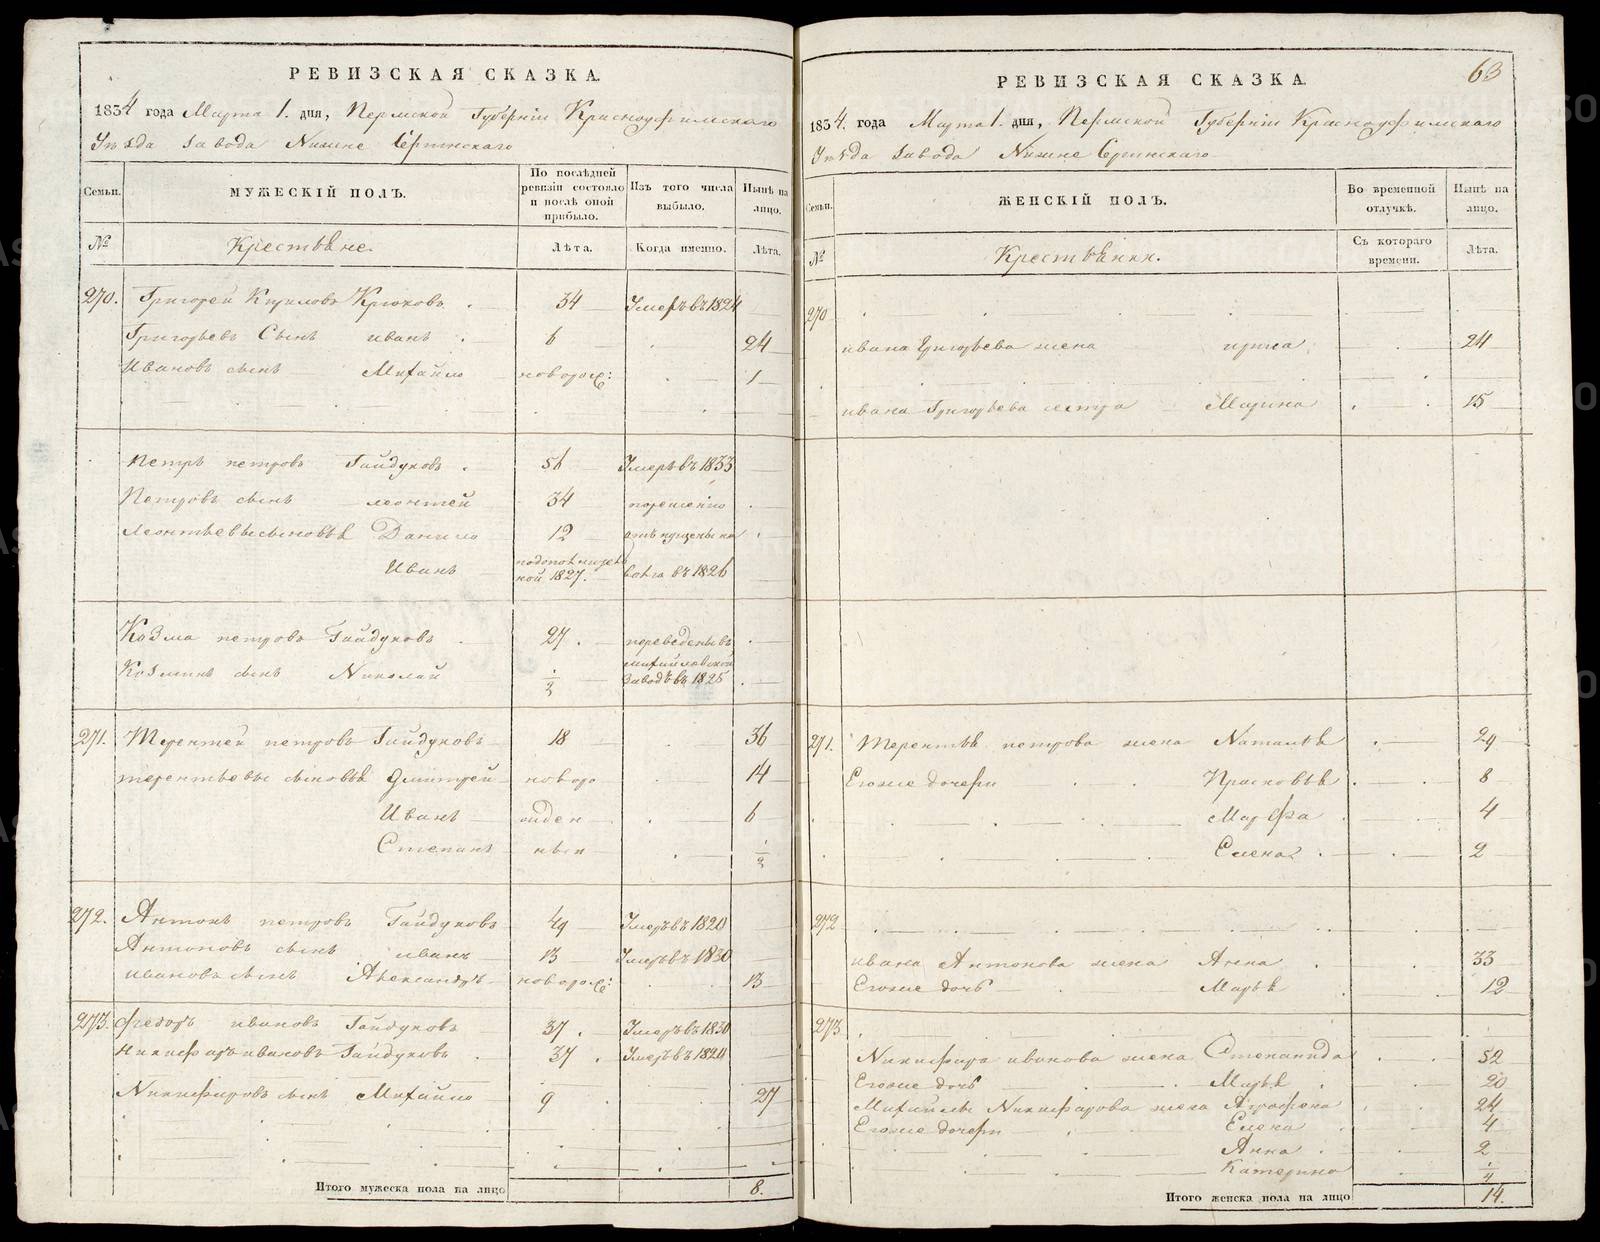 РЕВИЗСКАЯ СКАЗКА.
1834 года Марта 1. дня, Пермской Губерніи Красноуфимскаго
Уѣзда завода Нижне Сергинскаго
Семьи. МУЖЕСКІЙ ПОЛЪ. По послѣдней ревизіи состояло и послѣ оной прибыло. Изъ того числа выбыло. Нынѣ на лицо.
№ Крестьяне. Лѣта. Когда именно. Лѣта.
270. Григорей Кирилловъ Крюковъ 34 Умеръ въ 1824
Григорьевъ Сынъ иванъ 6 24
Ивановъ сынъ Михайло новорож: 1
Петръ петровъ Гайдуковъ 56 Умеръ въ 1833
Петровъ сынъ леонтей 34
леонтьевы сыновья Данило 12
Иванъ 1827. въ 1826
Козма петровъ Гайдуковъ 27 переведены въ
михайловской
Козминъ сынъ Николай 1/2 заводъ въ 1825
271. Терентей петровъ Гайдуковъ 18 36
терентьевы сыновья Дмитрей новоро 14
Иванъ жден 6
Степанъ ныи 1/2
272. Антонъ петровъ Гайдуковъ 49 Умеръ въ 1820
Антоновъ сынъ иванъ 13 Умеръ въ 1830
ивановъ сынъ Александръ новорож: 13
273. Федоръ ивановъ Гайдуковъ 37 Умеръ въ 1830
Никифоръ ивановъ Гайдуковъ 37 Умеръ въ 1820
Никифоровъ сынъ Михайло 9 27
Итого мужеска пола на лицо 8.
63
РЕВИЗСКАЯ СКАЗКА.
1834. года Марта 1. дня, Пермской Губерніи Красноуфимскаго
Уѣзда завода Нижне Сергинскаго
Семьи. ЖЕНСКІЙ ПОЛЪ. Во временной отлучкѣ. Нынѣ на лицо.
№ Крестьянки. Съ котораго времени. Лѣта.
270
ивана Григорьева жена 24
ивана Григорьева сестра Марина 15
271. Терентья петрова жена Наталья 29
Егоже дочери Прасковья 8
Марфа 4
Елена 2
272
ивана Антонова жена Анна 33
Егоже дочь Марья 12
273
Никифора иванова жена Степанида 52
Егоже дочь Марья 20
Михайлы Никифорова жена Аграфена 24
Егоже дочери Елена 4
Анна 2
Катерина 1/4
Итого женска пола на лицо 14.